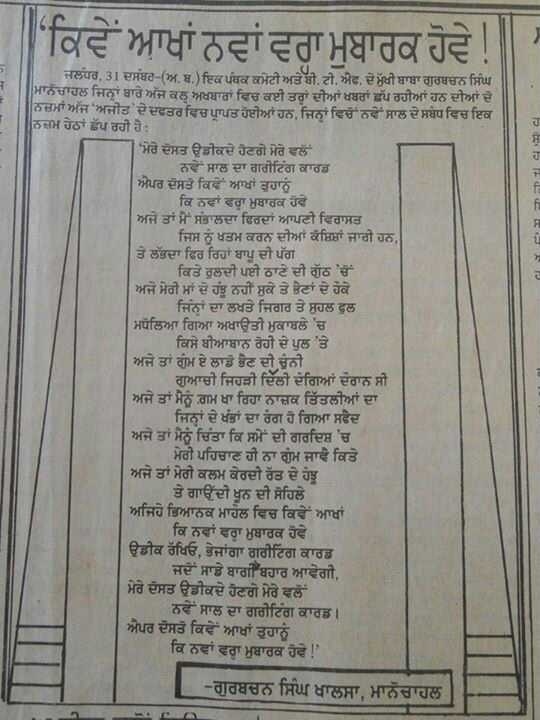 'ਕਿਵੇਂ ਆਖਾਂ ਨਵਾਂ ਵਰ੍ਹਾ ਮੁਬਾਰਕ ਹੋਵੇ !
ਜਲੰਧਰ, 31 ਦਸੰਬਰ-(ਅ. ਬ.) ਇਕ ਪੰਥਕ ਕਮੇਟੀ ਅਤੇ ਬੀ. ਟੀ. ਐਫ. ਦੇ ਮੁੱਖੀ ਬਾਬਾ ਗੁਰਬਚਨ ਸਿੰਘ
ਮਾਨੋਚਾਹਲ ਜਿਨ੍ਹਾਂ ਬਾਰੇ ਅੱਜ ਕਲ੍ਹ ਅਖਬਾਰਾਂ ਵਿਚ ਕਈ ਤਰ੍ਹਾਂ ਦੀਆਂ ਖਬਰਾਂ ਛੱਪ ਰਹੀਆਂ ਹਨ ਦੀਆਂ ਦੋ
ਨਜ਼ਮਾਂ ਅੱਜ 'ਅਜੀਤ' ਦੇ ਦਫਤਰ ਵਿਚ ਪ੍ਰਾਪਤ ਹੋਈਆਂ ਹਨ, ਜਿਨ੍ਹਾਂ ਵਿਚੋਂ ਨਵੇਂ ਸਾਲ ਦੇ ਸਬੰਧ ਵਿਚ ਇਕ
ਨਜ਼ਮ ਹੇਠਾਂ ਛੱਪ ਰਹੀ ਹੈ :
'ਮੇਰੇ ਦੋਸਤ ਉਡੀਕਦੇ ਹੋਣਗੇ ਮੇਰੇ ਵਲੋਂ
ਨਵੇਂ ਸਾਲ ਦਾ ਗਰੀਟਿੰਗ ਕਾਰਡ
ਐਪਰ ਦੋਸਤੋ ਕਿਵੇਂ ਆਖਾਂ ਤੁਹਾਨੂੰ
ਕਿ ਨਵਾਂ ਵਰ੍ਹਾ ਮੁਬਾਰਕ ਹੋਵੇ
ਅਜੇ ਤਾਂ ਮੈਂ ਸੰਭਾਲਦਾ ਫਿਰਦਾਂ ਆਪਣੀ ਵਿਰਾਸਤ
ਜਿਸ ਨੂੰ ਖਤਮ ਕਰਨ ਦੀਆਂ ਕੋਸ਼ਿਸ਼ਾਂ ਜਾਰੀ ਹਨ,
ਤੇ ਲੱਭਦਾ ਫਿਰ ਰਿਹਾਂ ਬਾਪੂ ਦੀ ਪੱਗ
ਕਿਤੇ ਰੁਲਦੀ ਪਈ ਠਾਣੇ ਦੀ ਗੁੱਠ 'ਚੋਂ
ਅਜੇ ਮੇਰੀ ਮਾਂ ਦੇ ਹੰਝੂ ਨਹੀਂ ਸੁਕੇ ਤੇ ਭੈਣਾਂ ਦੇ ਹੌਕੇ
ਜਿਨ੍ਹਾਂ ਦਾ ਲਖਤੇ ਜਿਗਰ ਤੇ ਸੁਹਲ ਫੁਲ
ਮਧੋਲਿਆ ਗਿਆ ਅਖਾਉਤੀ ਮੁਕਾਬਲੇ 'ਚ
ਕਿਸੇ ਬੀਆਬਾਨ ਰੋਹੀ ਦੇ ਪੁਲ 'ਤੇ
ਅਜੇ ਤਾਂ ਗੁੰਮ ਏ ਲਾਡੋ ਭੈਣ ਦੀ ਚੁੰਨੀ
ਗੁਆਚੀ ਜਿਹੜੀ ਦਿੱਲੀ ਦੰਗਿਆਂ ਦੌਰਾਨ ਸੀ
ਅਜੇ ਤਾਂ ਮੈਨੂੰ ਗਮ ਖਾ ਰਿਹਾ ਨਾਜ਼ਕ ਤਿੱਤਲੀਆਂ ਦਾ
ਜਿਨ੍ਹਾਂ ਦੇ ਖੰਭਾਂ ਦਾ ਰੰਗ ਹੋ ਗਿਆ ਸਫੈਦ
ਅਜੇ ਤਾਂ ਮੈਨੂੰ ਚਿੰਤਾ ਕਿ ਸਮੇਂ ਦੀ ਗਰਦਿਸ਼ 'ਚ
ਮੇਰੀ ਪਹਿਚਾਣ ਹੀ ਨਾ ਗੁੰਮ ਜਾਵੇ ਕਿਤੇ
ਅਜੇ ਤਾਂ ਮੇਰੀ ਕਲਮ ਕੇਰਦੀ ਰੱਤ ਦੇ ਹੰਝੂ
ਤੇ ਗਾਉਂਦੀ ਖੂਨ ਦੀ ਸੋਹਿਲੇ
ਅਜਿਹੇ ਭਿਆਨਕ ਮਾਹੌਲ ਵਿਚ ਕਿਵੇਂ ਆਖਾਂ
ਕਿ ਨਵਾਂ ਵਰ੍ਹਾ ਮੁਬਾਰਕ ਹੋਵੇ
ਉਡੀਕ ਰੱਖਿਓ, ਭੇਜਾਂਗਾ ਗਰੀਟਿੰਗ ਕਾਰਡ
ਜਦੋਂ ਸਾਡੇ ਬਾਗੀਂ ਬਹਾਰ ਆਵੇਗੀ,
ਮੇਰੇ ਦੋਸਤ ਉਡੀਕਦੇ ਹੋਣਗੇ ਮੇਰੇ ਵਲੋਂ
ਨਵੇਂ ਸਾਲ ਦਾ ਗਰੀਟਿੰਗ ਕਾਰਡ।
ਐਪਰ ਦੋਸਤੋ ਕਿਵੇਂ ਆਖਾਂ ਤੁਹਾਨੂੰ
ਕਿ ਨਵਾਂ ਵਰ੍ਹਾ ਮੁਬਾਰਕ ਹੋਵੇ !'
-ਗੁਰਬਚਨ ਸਿੰਘ ਖਾਲਸਾ, ਮਾਨੋਚਾਹਲ